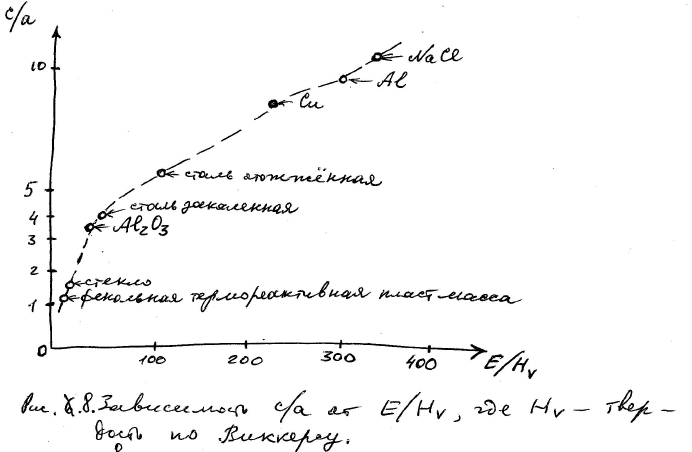 c/a
10
NaCl
Al
Cu
5
сталь отожжённая
4
сталь закаленная
3
Al₂O₃
2
стекло
1
фенольная термореактивная пластмасса
0
100
200
300
400
E/Hᵥ
Рис. 8. Зависимость c/a от E/Hᵥ, где Hᵥ – твер-
дость по Виккерсу.